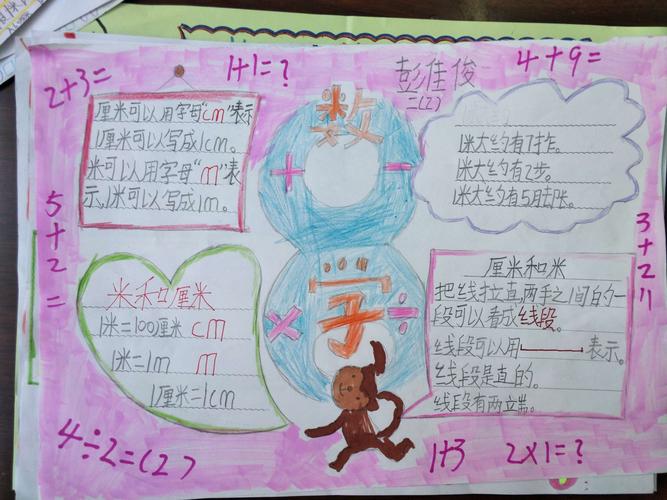 2+3=
1+1=?
彭佳俊
二(2)
4+9=
数
字
+
-
×
÷
厘米可以用字母"cm"表示
1厘米可以写成1cm。
米可以用字母"m"表
示,1米可以写成1m。
1米大约有7拃。
1米大约有2步。
1米大约有5月去长。
5+2=
3+2=
米和厘米
1米=100厘米 cm
1米=1m m
1厘米=1cm
厘米和米
把线拉直,两手之间的一
段可以看成线段。
线段可以用 表示。
线段是直的。
线段有两立端。
4÷2=(2)
1+3
2×1=?